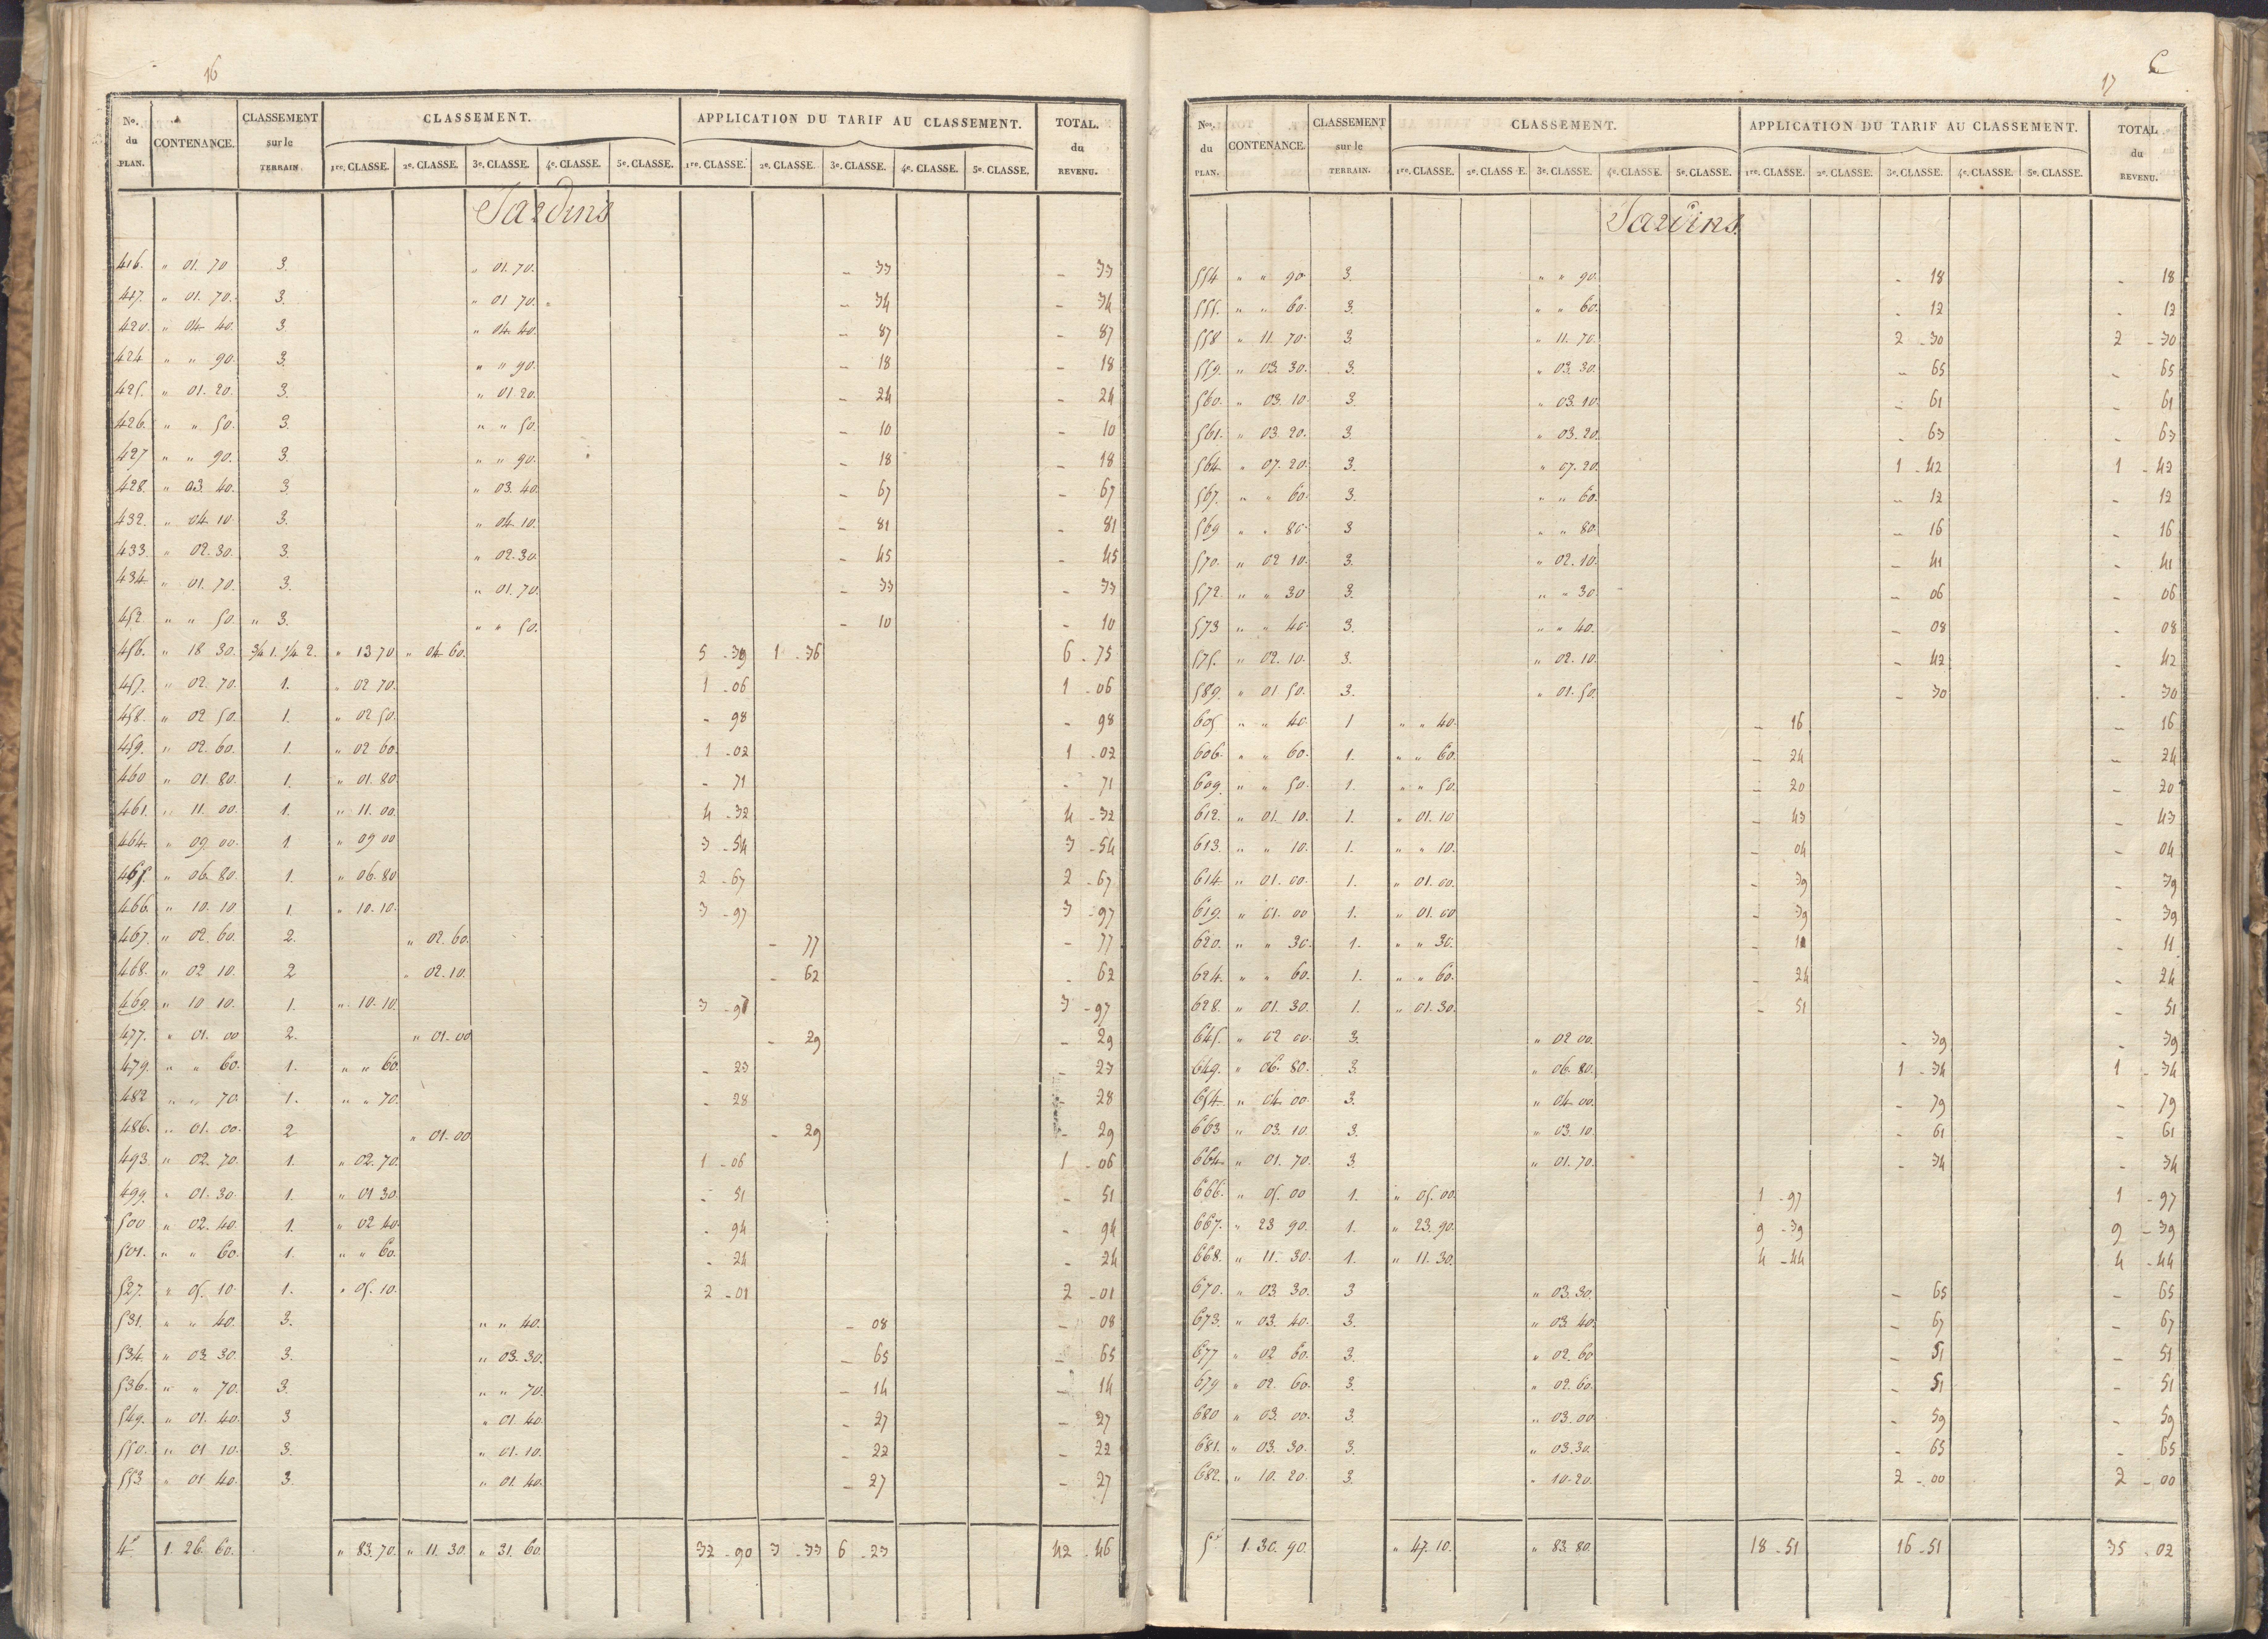 16
No. du PLAN. CONTENANCE. CLASSEMENT sur le TERRAIN CLASSEMENT. APPLICATION DU TARIF AU CLASSEMENT. TOTAL. du REVENU.
1re. CLASSE. 2e. CLASSE. 3e. CLASSE. 4e. CLASSE. 5e. CLASSE. 1re. CLASSE. 2e. CLASSE. 3e. CLASSE. 4e. CLASSE. 5e. CLASSE.
Jardins
416. " 01. 70 3. " 01. 70. - 33 - 33
417. " 01. 70. 3. " 01 70. - 34 - 34
420. " 04 40. 3 " 04. 40. - 87 - 87
424 " " 90. 3. " " 90. - 18 - 18
425. " 01. 20. 3. " 01 20. - 24 - 24
426. " " 50. 3. " " 50. - 10 - 10
427 " " 90. 3. " " 90. - 18 - 18
428. " 03. 40. 3 " 03. 40. - 67 - 67
432. " 04 10. 3. " 04. 10. - 81 - 81
433. " 02. 30. 3. " 02. 30. - 45 - 45
434. " 01. 70. 3. " 01. 70. - 33 - 33
452. " " 50. " 3. " " 50. - 10 - 10
456. " 18 30. 3/4 1. 1/4 2. " 13 70 " 04 60. 5 - 39 1 - 36 6 - 75
457. " 02. 70. 1. " 02 70. 1 - 06 1 - 06
458. " 02 50. 1. " 02 50. - 98 - 98
459. " 02. 60. 1. " 02 60. 1 - 02 1 - 02
460 " 01 80. 1. " 01. 80. - 71 - 71
461. " 11. 00. 1. " 11. 00. 4 - 32 4 - 32
464. " 09 00. 1. " 09 00 3 - 54 3 - 54
465. " 06. 80. 1. " 06. 80 2 - 67 2 - 67
466. " 10. 10 1. " 10. 10. 3 - 97 3 - 97
467. " 02. 60. 2. " 02. 60. - 77 - 77
468. " 02 10. 2 " 02. 10. - 62 - 62
469. " 10 10. 1. " 10. 10. 3 - 97 3 - 97
477. " 01. 00 2. " 01. 00 - 29 - 29
479. " " 60. 1. " " 60. - 23 - 23
482 " " 70 1. " " 70. - 28 - 28
486. " 01. 00. 2 " 01. 00 - 29 - 29
493 " 02. 70. 1. " 02. 70. 1 - 06 1 - 06
499. " 01. 30. 1. " 01 30. - 51 - 51
500 " 02. 40. 1. " 02 40. - 94 - 94
501. " " 60. 1. " " 60. - 24 - 24
527. " 05. 10. 1. " 05. 10. 2 - 01 2 - 01
531. " " 40. 3. " " 40. - 08 - 08
534. " 03 30. 3. " 03. 30. - 65 - 65
536. " " 70. 3. " " 70. - 14 - 14
549. " 01. 40. 3 " 01. 40. - 27 - 27
550. " 01 10. 3. " 01. 10. - 22 - 22
553 " 01 40. 3 " 01. 40. - 27 - 27
4e 1. 26. 60. " 83. 70. " 11. 30. " 31. 60. 32 - 90 3 - 33 6 - 23 42 - 46
17
C
Nos. du PLAN. CONTENANCE. CLASSEMENT sur le TERRAIN. CLASSEMENT. APPLICATION DU TARIF AU CLASSEMENT. TOTAL du REVENU.
1re. CLASSE. 2e. CLASSE. 3e. CLASSE. 4e. CLASSE. 5e. CLASSE. 1re. CLASSE. 2e. CLASSE. 3e. CLASSE. 4e. CLASSE. 5e. CLASSE.
Jardins.
554. " " 90. 3. " " 90. - 18 - 18
555. " " 60. 3. " " 60. - 12 - 12
558 " 11. 70. 3. " 11. 70. 2 - 30 2 - 30
559. " 03. 30. 3. " 03. 30. - 65 - 65
560. " 03. 10. 3. " 03. 10. - 61 - 61
561. " 03. 20. 3. " 03. 20. - 63 - 63
564. " 07. 20. 3. " 07. 20. 1 - 42 1 - 42
567. " " 60. 3. " " 60. - 12 - 12
569 " " 80. 3 " " 80. - 16 - 16
570. " 02 10. 3. " 02. 10. - 41 - 41
572. " " 30 3. " " 30. - 06 - 06
573 " " 40. 3. " " 40. - 08 - 08
575. " 02. 10. 3. " 02. 10. - 42 - 42
589. " 01 50. 3. " 01. 50. - 30 - 30
605 " " 40. 1 " " 40. - 16 - 16
606. " " 60. 1. " " 60. - 24 - 24
609. " " 50. 1. " " 50. - 20 - 20
612. " 01. 10. 1. " 01. 10 - 43 - 43
613. " " 10. 1. " " 10. - 04 - 04
614. " 01. 00. 1. " 01. 00. - 39 - 39
619. " 01. 00 1. " 01. 00 - 39 - 39
620. " " 30. 1. " " 30. - 11 - 11
624. " " 60. 1. " " 60. - 24 - 24
628. " 01. 30. 1. " 01. 30. - 51 - 51
645. " 02 00. 3. " 02 00. - 39 - 39
649. " 06. 80. 3. " 06. 80. 1 - 34 1 - 34
654. " 04. 00. 3. " 04. 00. - 79 - 79
663 " 03. 10. 3. " 03. 10. - 61 - 61
664. " 01. 70. 3. " 01. 70. - 34 - 34
666. " 05. 00 1. " 05. 00. 1 - 97 1 - 97
667. " 23 90. 1. " 23. 90. 9 - 39 9 - 39
668. " 11. 30. 1. " 11. 30. 4 - 44 4 - 44
670. " 03 30. 3 " 03. 30. - 65 - 65
673. " 03. 40. 3. " 03. 40. - 67 - 67
677 " 02 60. 3. " 02. 60 - 51 - 51
679 " 02. 60. 3. " 02. 60. - 51 - 51
680 " 03. 00. 3. " 03. 00 - 59 - 59
681. " 03. 30. 3. " 03. 30. - 65 - 65
682. " 10. 20. 3. " 10. 20. 2 - 00 2 - 00
5e 1. 30. 90. " 47. 10. " 83. 80. 18 - 51 16 - 51 35 - 02